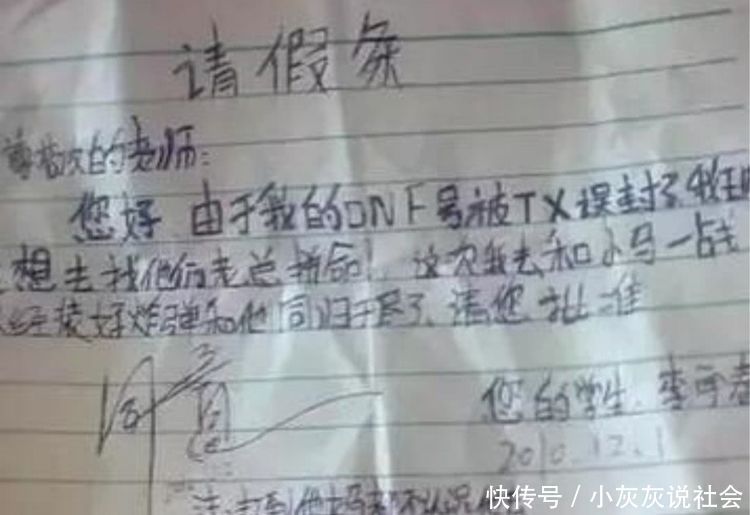 请假条
尊敬的老师:
您好 由于我的DNF号被TX误封了 我现
想去找他们老总拼命!这次我去和小马一战
经装好炸弹和他同归于尽了、请您批准
同意
您的学生、李
2010.12.1
注:打到他妈都不认识
快传号／小灰灰说社会